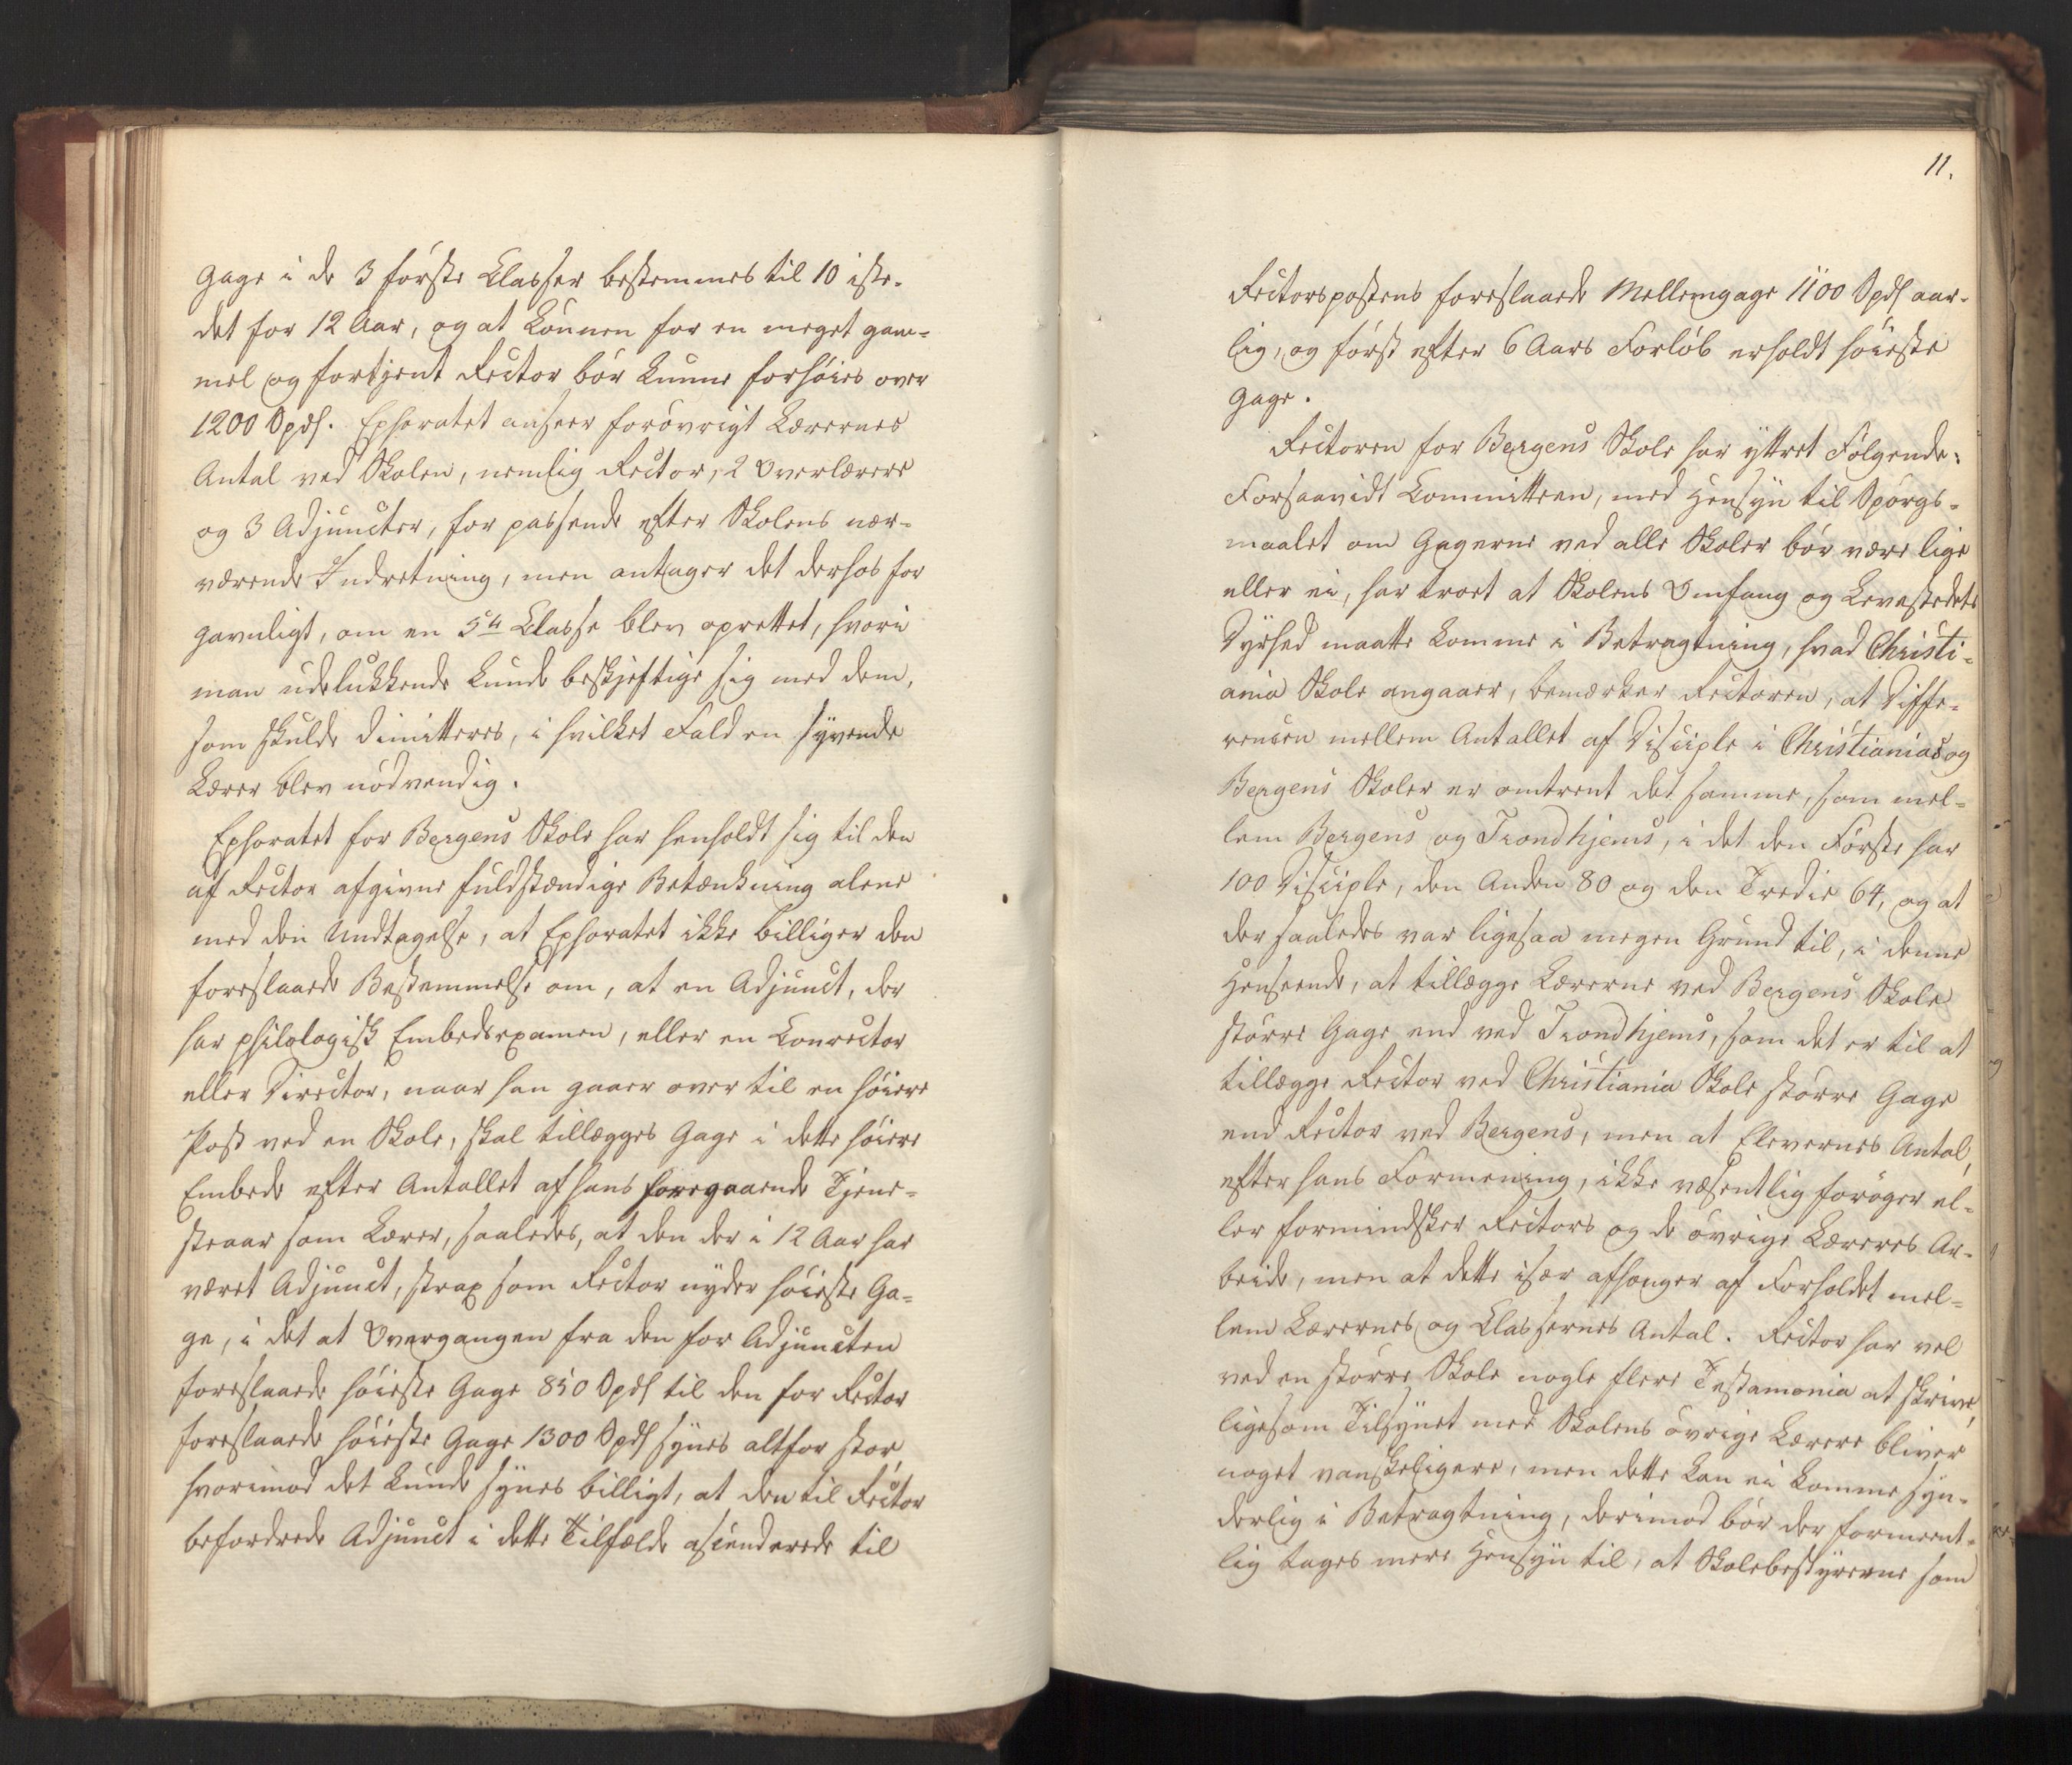 Gage i de 3 første Classer bestemmes til 10 iste-
det for 12 Aar, og at Lønnen for en meget gam-
mel og fortjent Rector bør kunne forhøies over
1200 Spdl. Ephoratet anseer forøvrigt Lærernes
Antal ved Skolen, nemlig Rector, 2 Overlærere
og 3 Adjuncter, for passende efter Skolens nær-
værende Indretning, men antager det derhos for
gavnligt, om en 5te Classe blev oprettet, hvori
man udelukkende kunde beskjeftige sig med dem,
som skulde dimitteres, i hvilket Fald en syvende
Lærer blev nødvendig.
Ephoratet for Bergens Skole har henholdt sig til den
af Rector afgivne fuldstændige Betænkning alene
med den Undtagelse, at Ephoratet ikke billiger den
foreslaaede Bestemmelse om, at en Adjunct, der
har philologisk Embedsexamen, eller en Conrector
eller Director, naar han gaaer over til en høiere
Post ved en Skole, skal tillægges Gage i dette høiere
Embede efter Antallet af hans foregaaende Tjene-
steaar som Lærer, saaledes, at den der i 12 Aar har
været Adjunct, strax som Rector nyder høieste Ga-
ge, i det at Overgangen fra den for Adjuncten
foreslaaede høieste Gage 850 Spdl til den for Rector
foreslaaede høieste Gage 1300 Spdl synes altfor stor,
hvorimod det kunde synes billigt, at den til Rector
befordrede Adjunct i dette Tilfælde ascenderede til
11.
Rectorpostens foreslaaede Mellemgage 1100 Spdl aar-
lig, og først efter 6 Aars Forløb erholdt høieste
Gage.
Rectoren for Bergens Skole har yttret Følgende:
Forsaavidt Committeen, med Hensyn til Spørgs-
maalet om Gagerne ved alle Skoler bør være lige
eller ei, har troet at Skolens Omfang og Levestedets
Dyrhed maatte komme i Betragtning, hvad Christi-
ania Skole angaaer, bemærker Rectoren, at Diffe-
rencen mellem Antallet af Disciple i Christianias og
Bergens Skoler er omtrent det samme, som mel-
lem Bergens og Trondhjems, i det den Første har
100 Disciple, den Anden 80 og den Tredie 64, og at
der saaledes var ligesaa megen Grund til, i denne
Henseende, at tillægge Lærerne ved Bergens Skole
større Gage end ved Trondhjems, som det er til at
tillægge Rector ved Christiania Skole større Gage
end Rector ved Bergens, men at Elevernes Antal,
efter hans Formening, ikke væsentlig forøger el-
ler formindsker Rectors og de øvrige Læreres Ar-
beide, men at dette især afhænger af Forholdet mel-
lem Lærernes og Classernes Antal. Rector har vel
ved en større Skole nogle flere Testamonia at skrive,
ligesom Tilsynet med Skolens øvrige Lærere bliver
noget vanskeligere, men dette kan ei komme syn-
derlig i Betragtning, derimod bør der formeent-
lig tages mere Hensyn til, at Skolebestyrerne som